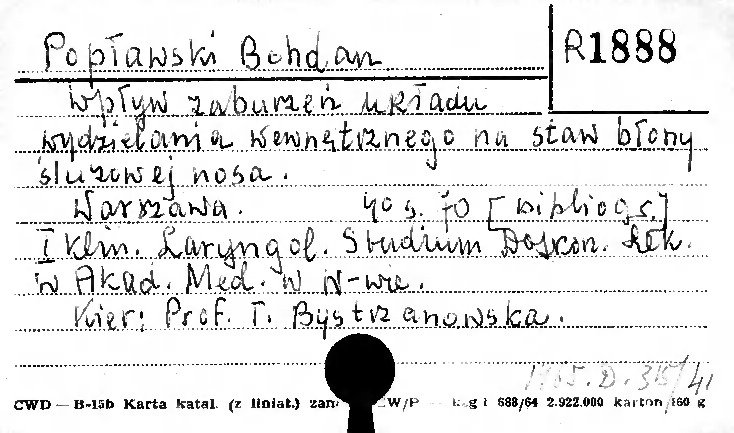 Popławski Bohdan
R1888
Wpływ zaburzeń układu
wydzielania wewnętrznego na staw błony
śluzowej nosa.
Warszawa. 40 s. fo [bibliogr.]
I Klin. Laryngol. Studium Doskon. Lek.
w Akad. Med. w W-wie.
Kier: Prof. T. Bystrzanowska.
1965.D.315/41
CWD — B-15b Karta katal. (z liniat.) zam. CW/P — 688/64 2.922.000 karton 160 g